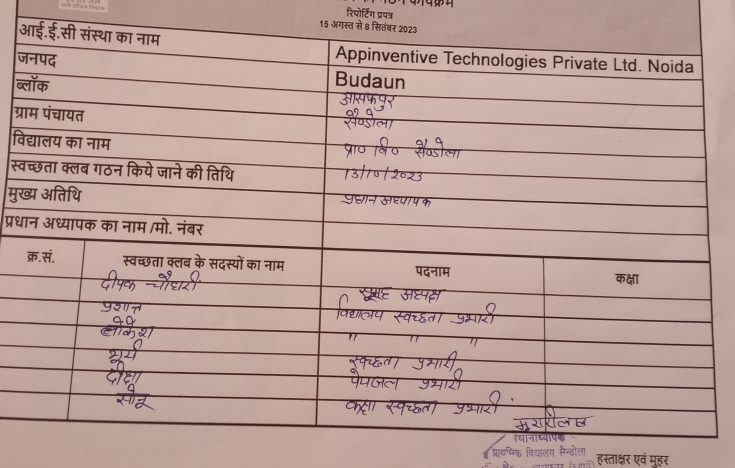 रिपोर्टिंग प्रपत्र
15 अगस्त से 8 सितंबर 2023
आई.ई.सी संस्था का नाम Appinventive Technologies Private Ltd. Noida
जनपद Budaun
ब्लॉक आसफपुर
ग्राम पंचायत सैण्डोला
विद्यालय का नाम प्रा० वि० सैण्डोला
स्वच्छता क्लब गठन किये जाने की तिथि 13/10/2023
मुख्य अतिथि प्रधान अध्यापक
प्रधान अध्यापक का नाम /मो. नंबर
क्र.सं. स्वच्छता क्लब के सदस्यों का नाम पदनाम कक्षा
दीपक चौधरी अध्यक्ष
प्रशान्त विद्यालय स्वच्छता प्रभारी
लोकेश " " "
सूर्या स्वच्छता प्रभारी
दीक्षा पेयजल प्रभारी
सोनू कक्षा स्वच्छता प्रभारी
प्राथमिक विद्यालय सैन्डोला
हस्ताक्षर एवं मुहर